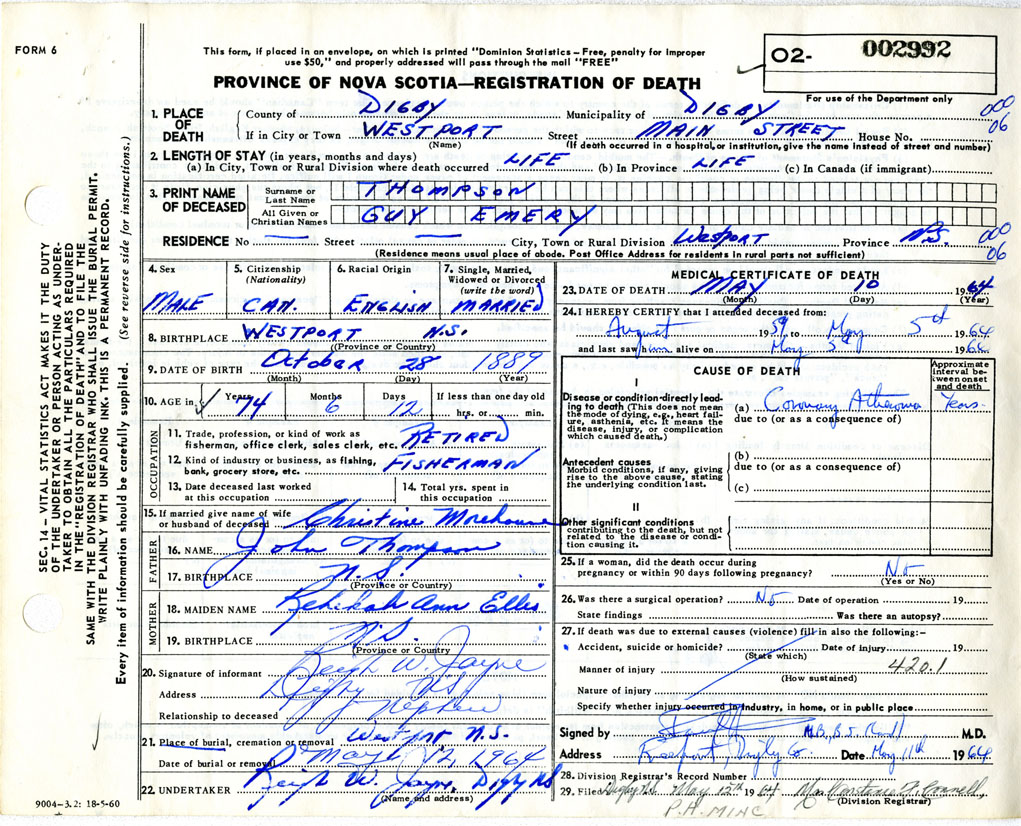 FORM 6
This form, if placed in an envelope, on which is printed "Dominion Statistics – Free, penalty for improper
use $50," and properly addressed will pass through the mail "FREE"
02- 002992
PROVINCE OF NOVA SCOTIA—REGISTRATION OF DEATH
For use of the Department only
1. PLACE OF DEATH
County of DIGBY Municipality of DIGBY 000
If in City or Town WESTPORT Street MAIN STREET House No. 06
(Name) (If death occurred in a hospital, or institution, give the name instead of street and number)
2. LENGTH OF STAY (in years, months and days)
(a) In City, Town or Rural Division where death occurred LIFE (b) In Province LIFE (c) In Canada (if immigrant)
3. PRINT NAME OF DECEASED
Surname or Last Name THOMPSON
All Given or Christian Names GUY EMERY
RESIDENCE No — Street — City, Town or Rural Division Westport Province N.S. 000
(Residence means usual place of abode. Post Office Address for residents in rural parts not sufficient) 06
4. Sex MALE
5. Citizenship (Nationality) CAN.
6. Racial Origin ENGLISH
7. Single, Married, Widowed or Divorced (write the word) MARRIED
8. BIRTHPLACE WESTPORT N.S.
(Province or Country)
9. DATE OF BIRTH October 28 1889
(Month) (Day) (Year)
10. AGE in Years 74 Months 6 Days 12 If less than one day old hrs. or min.
OCCUPATION
11. Trade, profession, or kind of work as fisherman, office clerk, sales clerk, etc. RETIRED
12. Kind of industry or business, as fishing, bank, grocery store, etc. FISHERMAN
13. Date deceased last worked at this occupation
14. Total yrs. spent in this occupation
15. If married give name of wife or husband of deceased Christine Morehouse
FATHER
16. NAME John Thompson
17. BIRTHPLACE N.S.
(Province or Country)
MOTHER
18. MAIDEN NAME Rehikah Ann Ellis
19. BIRTHPLACE N.S.
(Province or Country)
20. Signature of informant Reigh W. Jayne
Address Digby N.S.
Relationship to deceased Nephew
21. Place of burial, cremation or removal Westport N.S.
Date of burial or removal May 12, 1964
22. UNDERTAKER Reigh W. Jayne, Digby NS
(Name and address)
MEDICAL CERTIFICATE OF DEATH
23. DATE OF DEATH MAY 10 1964
(Month) (Day) (Year)
24. I HEREBY CERTIFY that I attended deceased from:
August 1959 to May 5th 1964
and last saw him alive on May 5th 1964
CAUSE OF DEATH
Approximate interval between onset and death
I
Disease or condition directly leading to death (This does not mean the mode of dying, e.g., heart failure, asthenia, etc. It means the disease, injury, or complication which caused death.)
(a) Coronary Atheroma Years
due to (or as a consequence of)
Antecedent causes
Morbid conditions, if any, giving rise to the above cause, stating the underlying condition last.
(b)
due to (or as a consequence of)
(c)
II
Other significant conditions
contributing to the death, but not related to the disease or condition causing it.
25. If a woman, did the death occur during pregnancy or within 90 days following pregnancy? No
(Yes or No)
26. Was there a surgical operation? No Date of operation 19
State findings Was there an autopsy?
27. If death was due to external causes (violence) fill in also the following:–
Accident, suicide or homicide? Date of injury 19
(State which)
Manner of injury 420.1
(How sustained)
Nature of injury
Specify whether injury occurred in industry, in home, or in public place
Signed by M.B., B.S. (Lond) M.D.
Address Freeport, Digby Co. Date May 11th 1964
28. Division Registrar's Record Number
29. Filed Digby N.S. May 12th 1964 Mrs. Constance F. Connell
(Division Registrar)
P.H. MINC
SEC. 14 – VITAL STATISTICS ACT MAKES IT THE DUTY
OF THE UNDERTAKER OR PERSON ACTING AS UNDER-
TAKER TO OBTAIN ALL THE PARTICULARS REQUIRED
IN THE "REGISTRATION OF DEATH" AND TO FILE THE
SAME WITH THE DIVISION REGISTRAR WHO SHALL ISSUE THE BURIAL PERMIT.
WRITE PLAINLY WITH UNFADING INK. THIS IS A PERMANENT RECORD.
Every item of information should be carefully supplied. (See reverse side for instructions.)
9004-3.2: 18-5-60